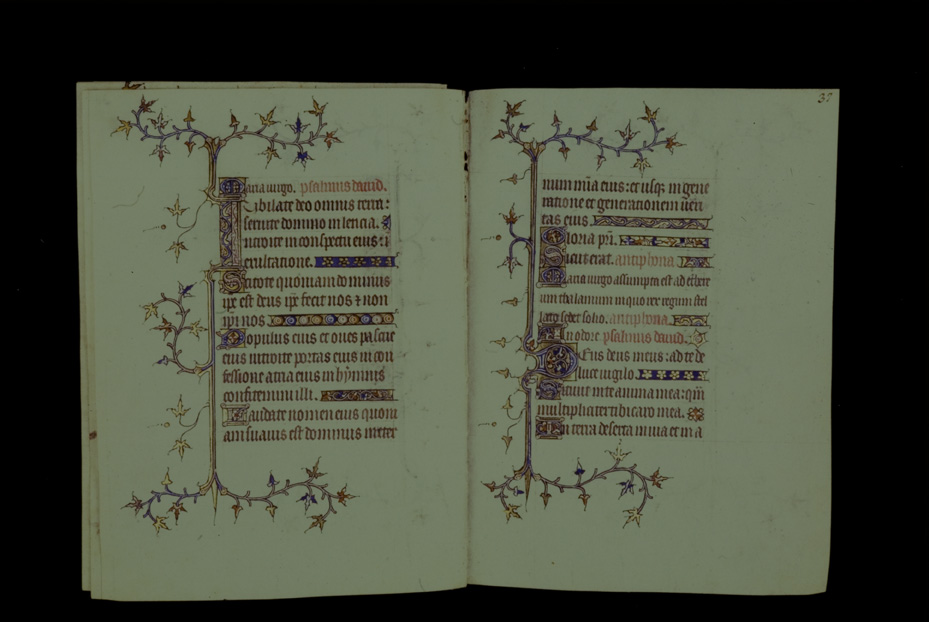 Maria virgo. psalmus david.
Iubilate deo omnis terra:
servite domino in leticia.
Introite in conspectu eius: i
exultatione.
Scitote quoniam dominus
ipe est deus ipe fecit nos ⁊ non
ipi nos
Populus eius et oves pascue
eius introite portas eius in con
fessione atria eius in hymnis
confitemini illi.
Laudate nomen eius quoni
am suavis est dominus ineter
37
num mia eius: et usq; in gene
ratione et generationem veri
tas eius.
Gloria pri.
Sicut erat. antiphona.
Maria virgo assumpta est ad ethere
um thalamum in quo rex regum stel
lato sedet solio. antiphona.
In odore. psalmus david.
Deus deus meus: ad te de
luce vigilo.
Sitivit in te anima mea: qm
multipliciter tibi caro mea.
In terra deserta in via et in a